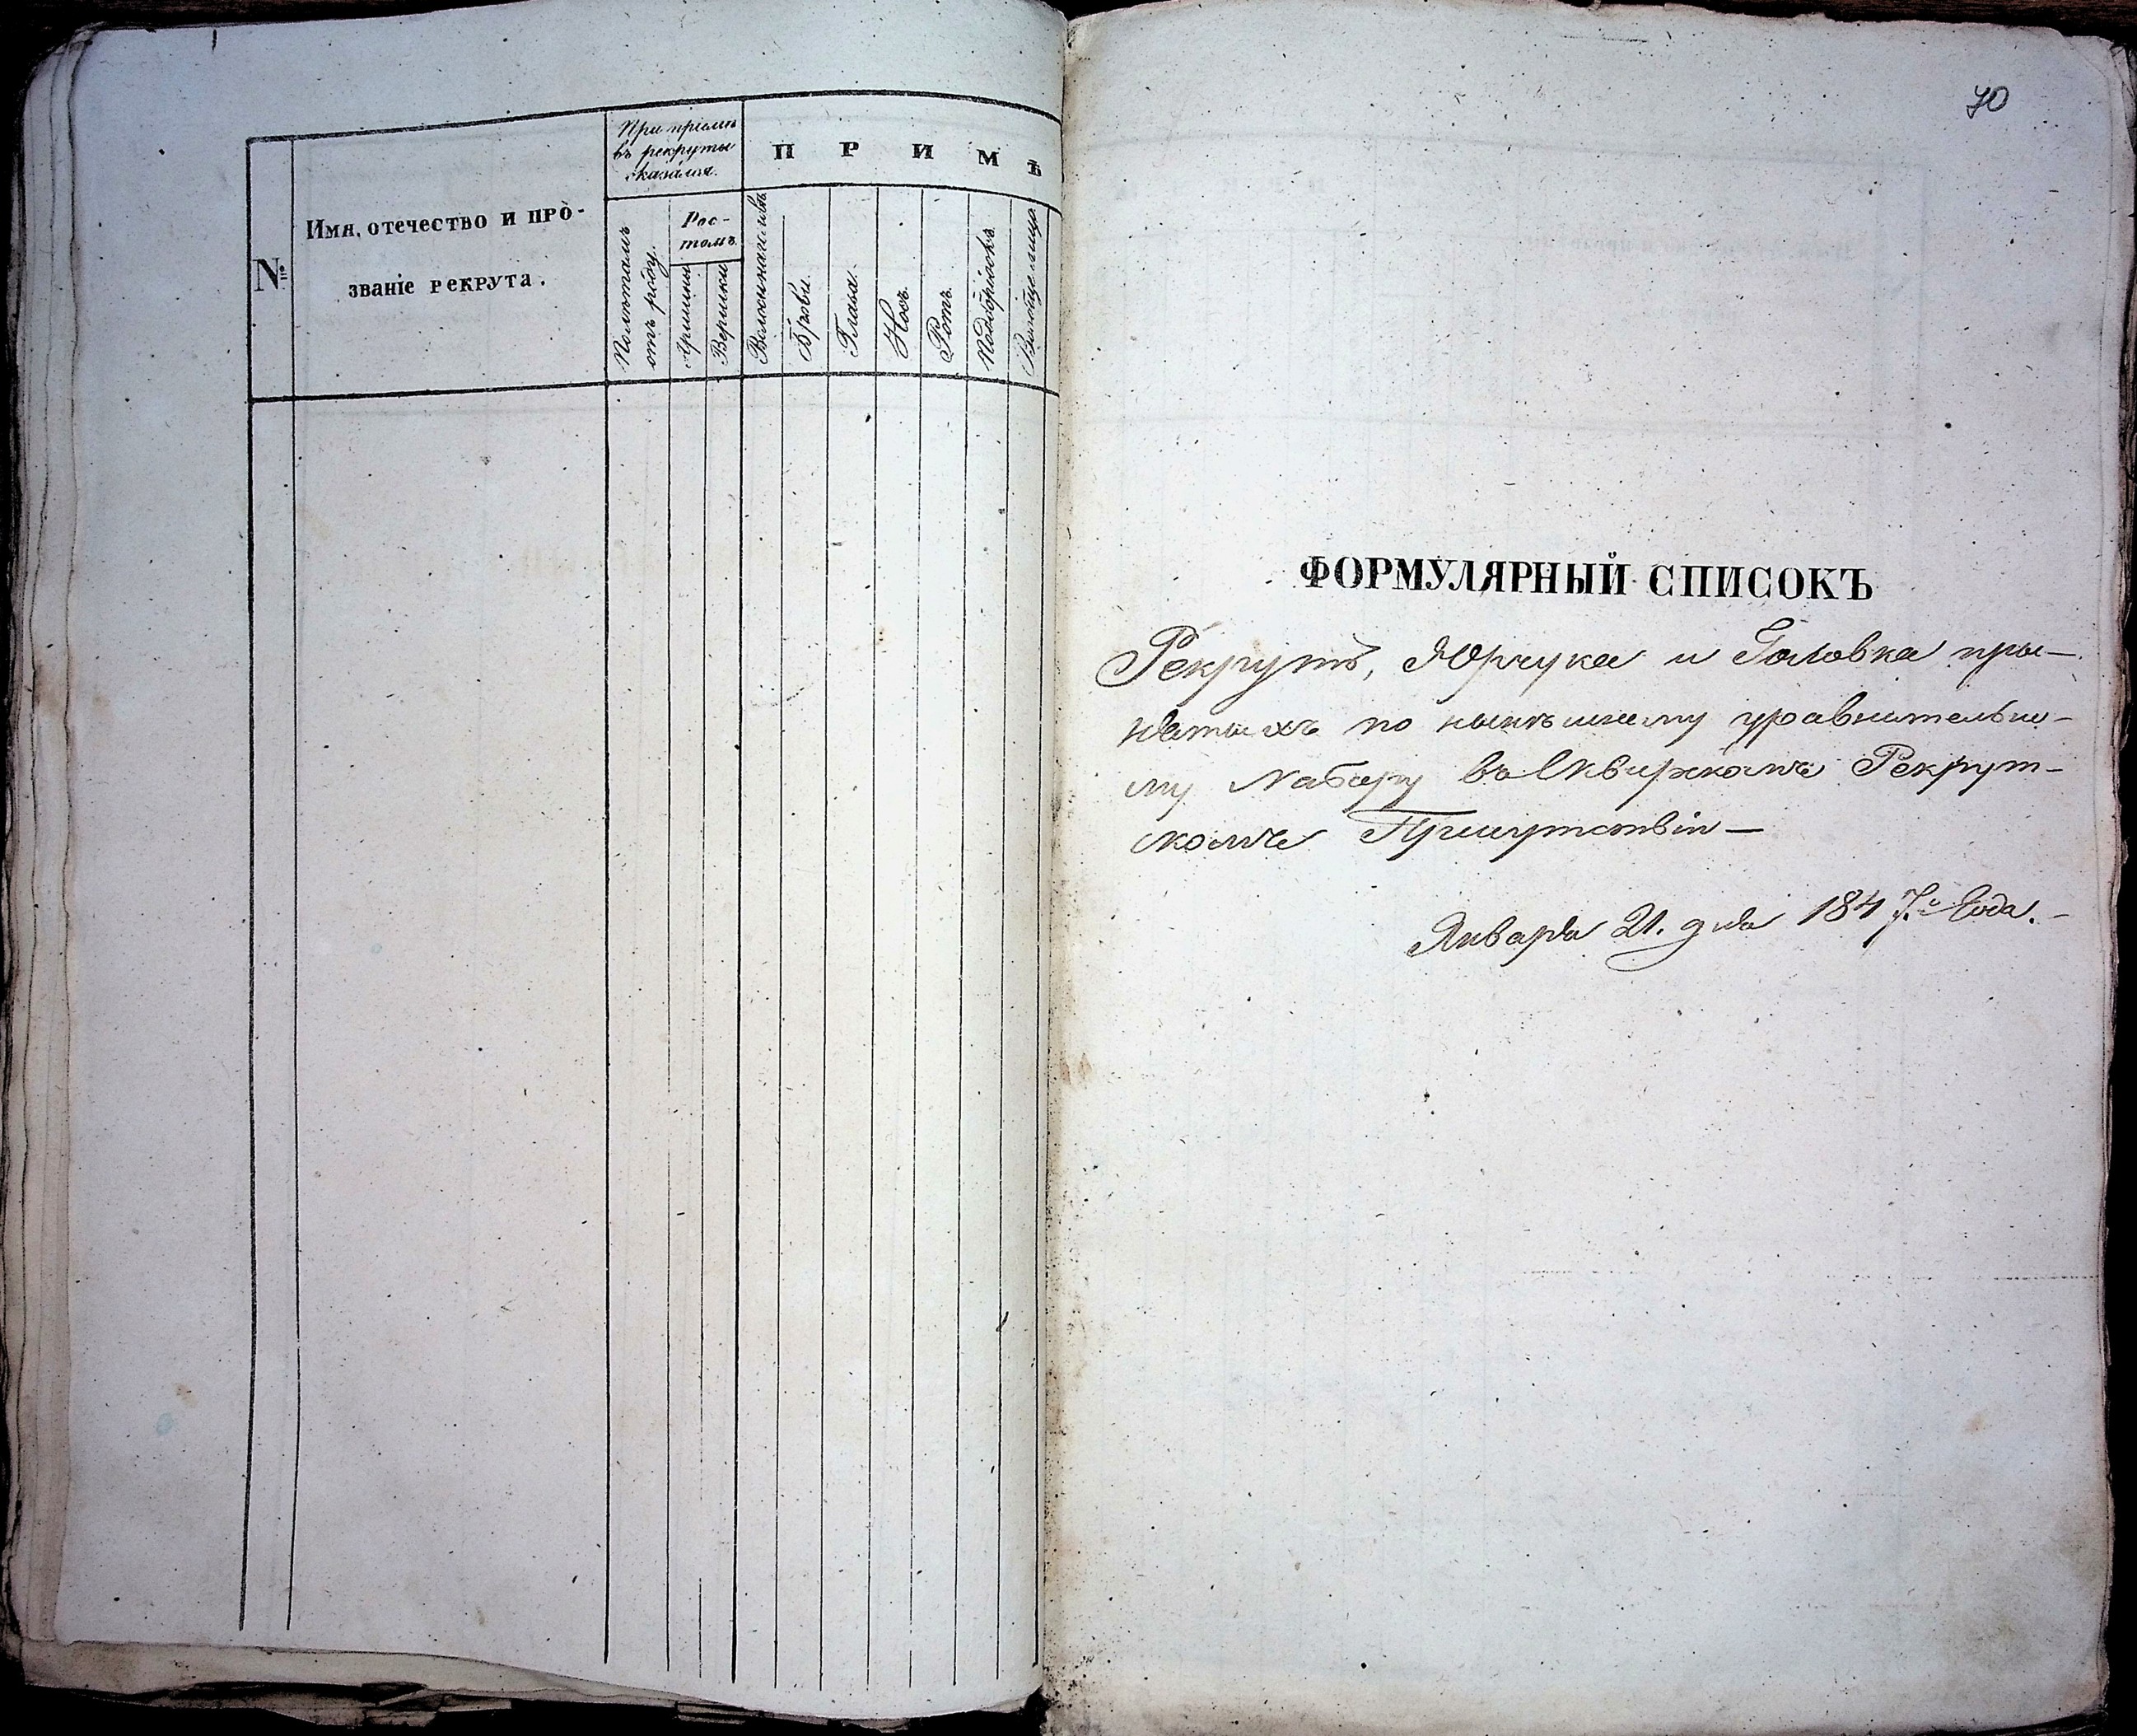 №
Имя, отечество и про-
званіе рекрута.
При пріемѣ
въ рекруты
оказался.
Полѣтамъ
отъ роду.
Рос-
томъ.
Аршины
Вершки
ПРИМѢ
Волосы на головѣ
Брови.
Глаза.
Носъ.
Ротъ.
Подбородокъ.
Вообще лицо
70
ФОРМУЛЯРНЫЙ СПИСОКЪ
Рекрутъ, Юрчука и Головка при-
нятыхъ по нынѣшнему уравнительно-
му Набору въ Сквирскомъ Рекрут-
скомъ Присутствіи —
Января 21. дня 1847.го Года. -